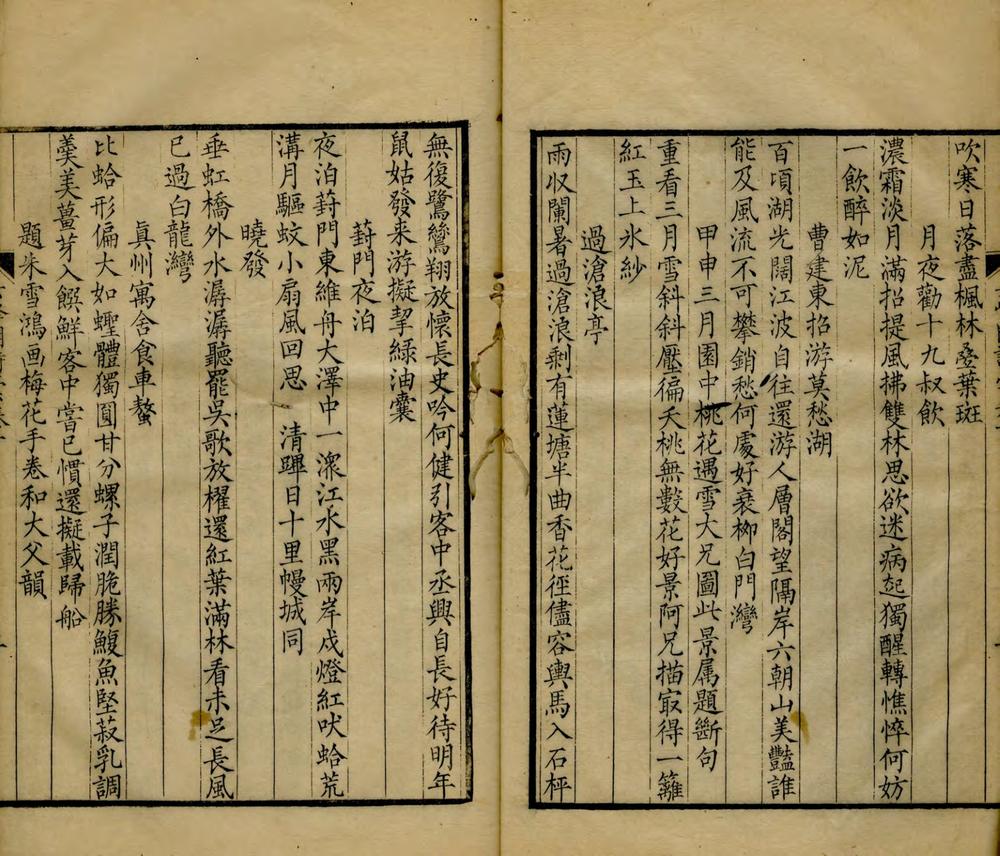 吹寒日落盡楓林叠葉斑
月夜勸十九叔飲
濃霜淡月滿招提風拂雙林思欲迷病起獨醒轉憔悴何妨
一飲醉如泥
曹建東招游莫愁湖
百頃湖光闊江波自往還游人層閣望隔岸六朝山美豔誰
能及風流不可攀銷愁何處好衰柳白門灣
甲申三月園中桃花遇雪大兄圖此景属題斷句
重看三月雪斜斜壓徧夭桃無數花好景阿兄描㝡得一籬
紅玉上氷紗
過滄浪亭
雨収闌暑過滄浪剩有蓮塘半曲香花徑儘容輿馬入石枰
無復鷺鶿翔放懷長史吟何健引客中丞興自長好待明年
鼠姑發来游擬挈綠油囊
葑門夜泊
夜泊葑門東維舟大澤中一瀠江水黑兩岸戍燈紅吠蛤荒
溝月驅蚊小扇風回思 清蹕日十里幔城同
曉發
垂虹橋外水潺潺聽罷吳歌放櫂還紅葉滿林看未足長風
已過白龍灣
眞州寓舍食車螯
比蛤形偏大如蟶體獨圓甘分螺子潤脆勝鰒魚堅菽乳調
羹美薑芽入饌鮮客中嘗已慣還擬載歸船
題朱雪鴻画梅花手卷和大父韻